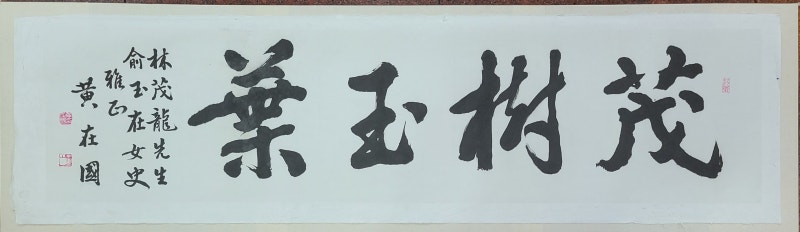 茂樹玉葉
林茂龍先生
俞玉在女史
雅正
黄在國